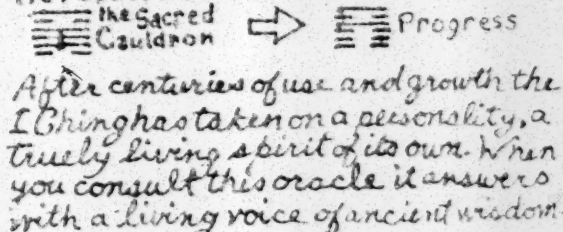 the Sacred
Cauldron
Progress
After centuries of use and growth the
I Ching has taken on a personality, a
truely living spirit of its own. When
you consult this oracle it answers
with a living voice of ancient wisdom.